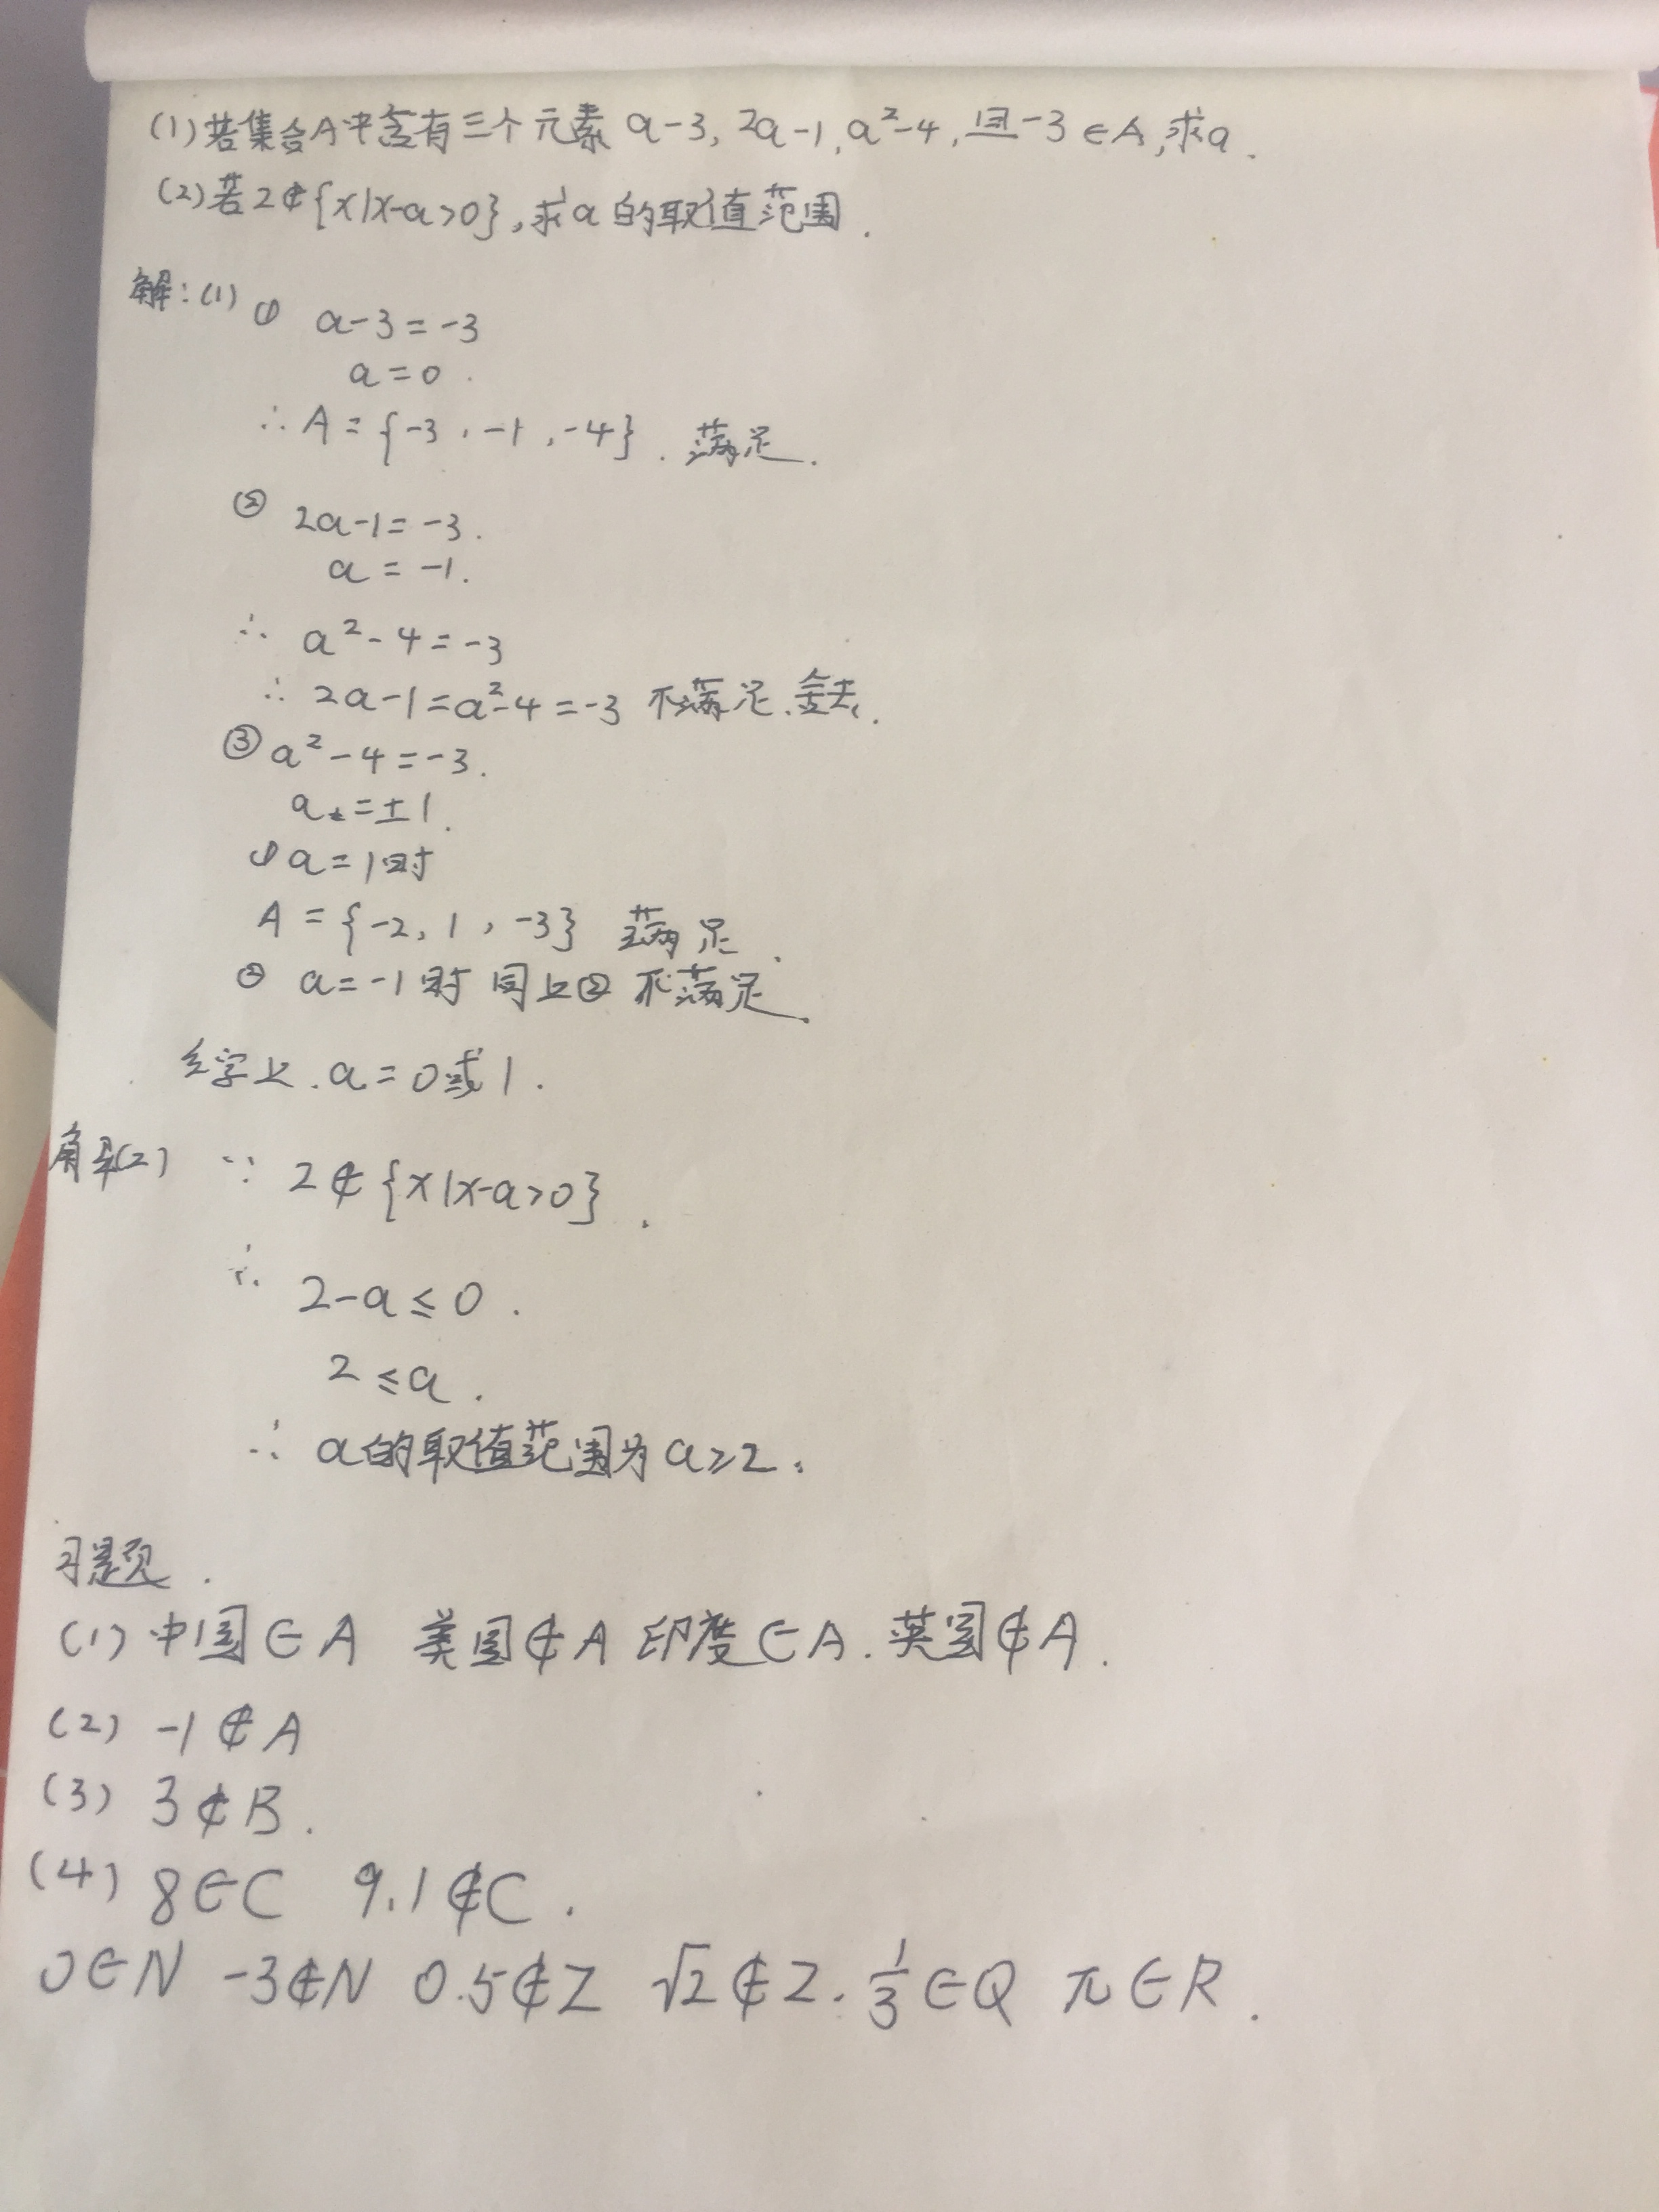 (1)若集合A中含有三个元素 a-3, 2a-1, a²-4, 且-3∈A, 求a.
(2)若2∉{x|x-a>0}, 求a的取值范围.
解:(1) ① a-3=-3
a=0.
∴ A={-3, -1, -4}. 满足.
② 2a-1=-3.
a=-1.
∴ a²-4=-3
∴ 2a-1=a²-4=-3 不满足.舍去.
③ a²-4=-3.
a=±1.
① a=1时
A={-2, 1, -3} 满足.
② a=-1时 同上② 不满足.
综上. a=0或1.
解(2) ∵ 2∉{x|x-a>0}.
∴ 2-a≤0.
2≤a.
∴ a的取值范围为a≥2.
习题.
(1) 中国∈A 美国∉A 印度∈A. 英国∉A.
(2) -1∉A
(3) 3∉B.
(4) 8∈C 9.1∉C.
0∈N -3∉N 0.5∉Z √2∉Z. 1/3∈Q π∈R.